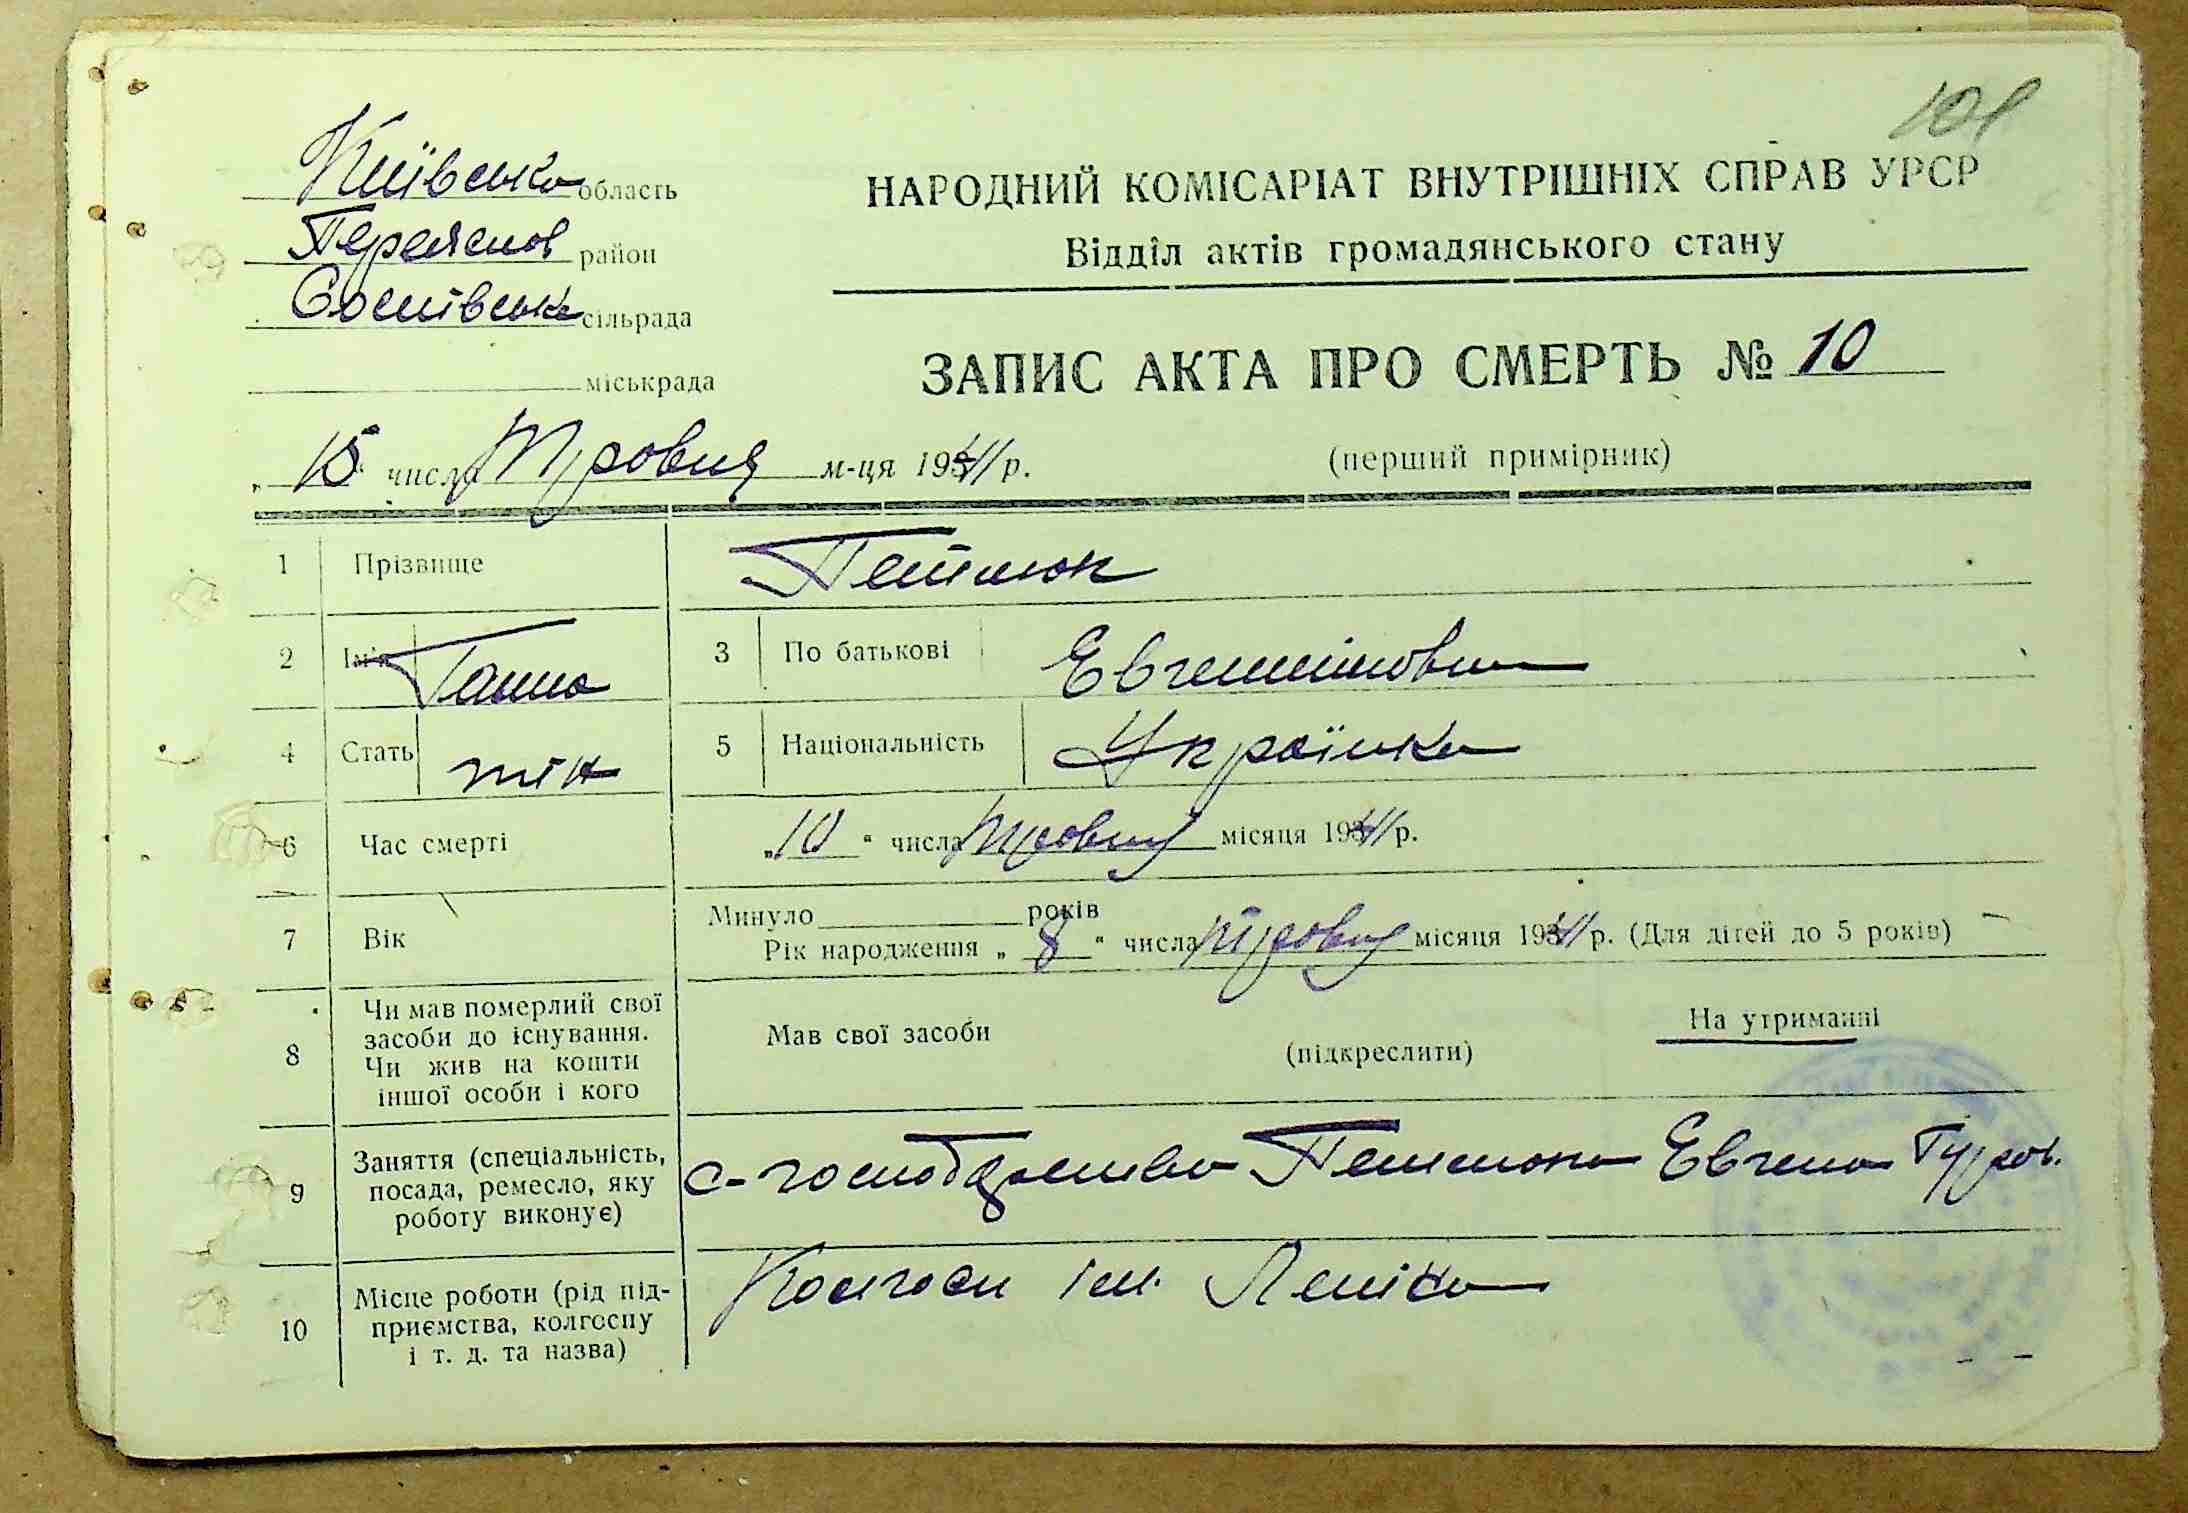 Київська область
Переяслов район
Сошнівська сільрада
міськрада
НАРОДНИЙ КОМІСАРІАТ ВНУТРІШНІХ СПРАВ УРСР
Відділ актів громадянського стану
ЗАПИС АКТА ПРО СМЕРТЬ № 10
„ 15 " числа Травня м-ця 1941 р.
(перший примірник)
1 Прізвище
2 Ім'я Ганна 3 По батькові
4 Стать жін 5 Національність Українка
6 Час смерті „10" числа Травня місяця 1941 р.
7 Вік Минуло років
Рік народження „ 8 " числа Травня місяця 1941 р. (Для дітей до 5 років)
8 Чи мав померлий свої засоби до існування. Чи жив на кошти іншої особи і кого
Мав свої засоби (підкреслити) На утриманні
9 Заняття (спеціальність, посада, ремесло, яку роботу виконує)
с-господарство Евгена
10 Місце роботи (рід підприємства, колгоспу і т. д. та назва)
Колгосп ім. Леніна